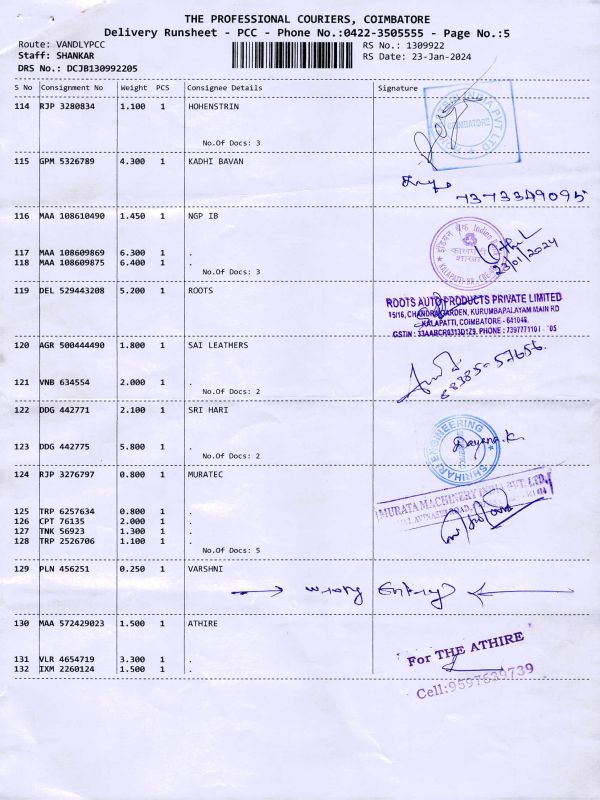 THE PROFESSIONAL COURIERS, COIMBATORE
Delivery Runsheet - PCC - Phone No.:0422-3505555 - Page No.:5
Route: VANDLYPCC RS No.: 1309922
Staff: SHANKAR RS Date: 23-Jan-2024
DRS No.: DCJB130992205
S No Consignment No Weight PCS Consignee Details Signature
114 RJP 3280834 1.100 1 HOHENSTRIN
COIMBATORE
No.Of Docs: 3
115 GPM 5326789 4.300 1 KADHI BAVAN
7373349095
116 MAA 108610490 1.450 1 NGP IB
23/01/2024
117 MAA 108609869 6.300 1 .
118 MAA 108609875 6.400 1 .
No.Of Docs: 3
119 DEL 529443208 5.200 1 ROOTS
ROOTS AUTO PRODUCTS PRIVATE LIMITED
15/16, CHANDRA GARDEN, KURUMBAPALAYAM MAIN RD
KALAPATTI, COIMBATORE - 641048.
120 AGR 500444490 1.800 1 SAI LEATHERS
68385-57656.
121 VNB 634554 2.000 1 .
No.Of Docs: 2
122 DDG 442771 2.100 1 SRI HARI
SHRIHARI ENGINEERING
Dayana.K.
123 DDG 442775 5.800 1 .
No.Of Docs: 2
124 RJP 3276797 0.800 1 MURATEC
MURATA MACHINERY INDIA PVT. LTD.,
125 TRP 6257634 0.800 1 .
126 CPT 76135 2.000 1 .
127 TNK 56923 1.300 1 .
128 TRP 2526706 1.100 1 .
No.Of Docs: 5
129 PLN 456251 0.250 1 VARSHNI
wrong Entry
130 MAA 572429023 1.500 1 ATHIRE
For THE ATHIRE
131 VLR 4654719 3.300 1 .
132 IXM 2260124 1.500 1 .
Cell:9597639739